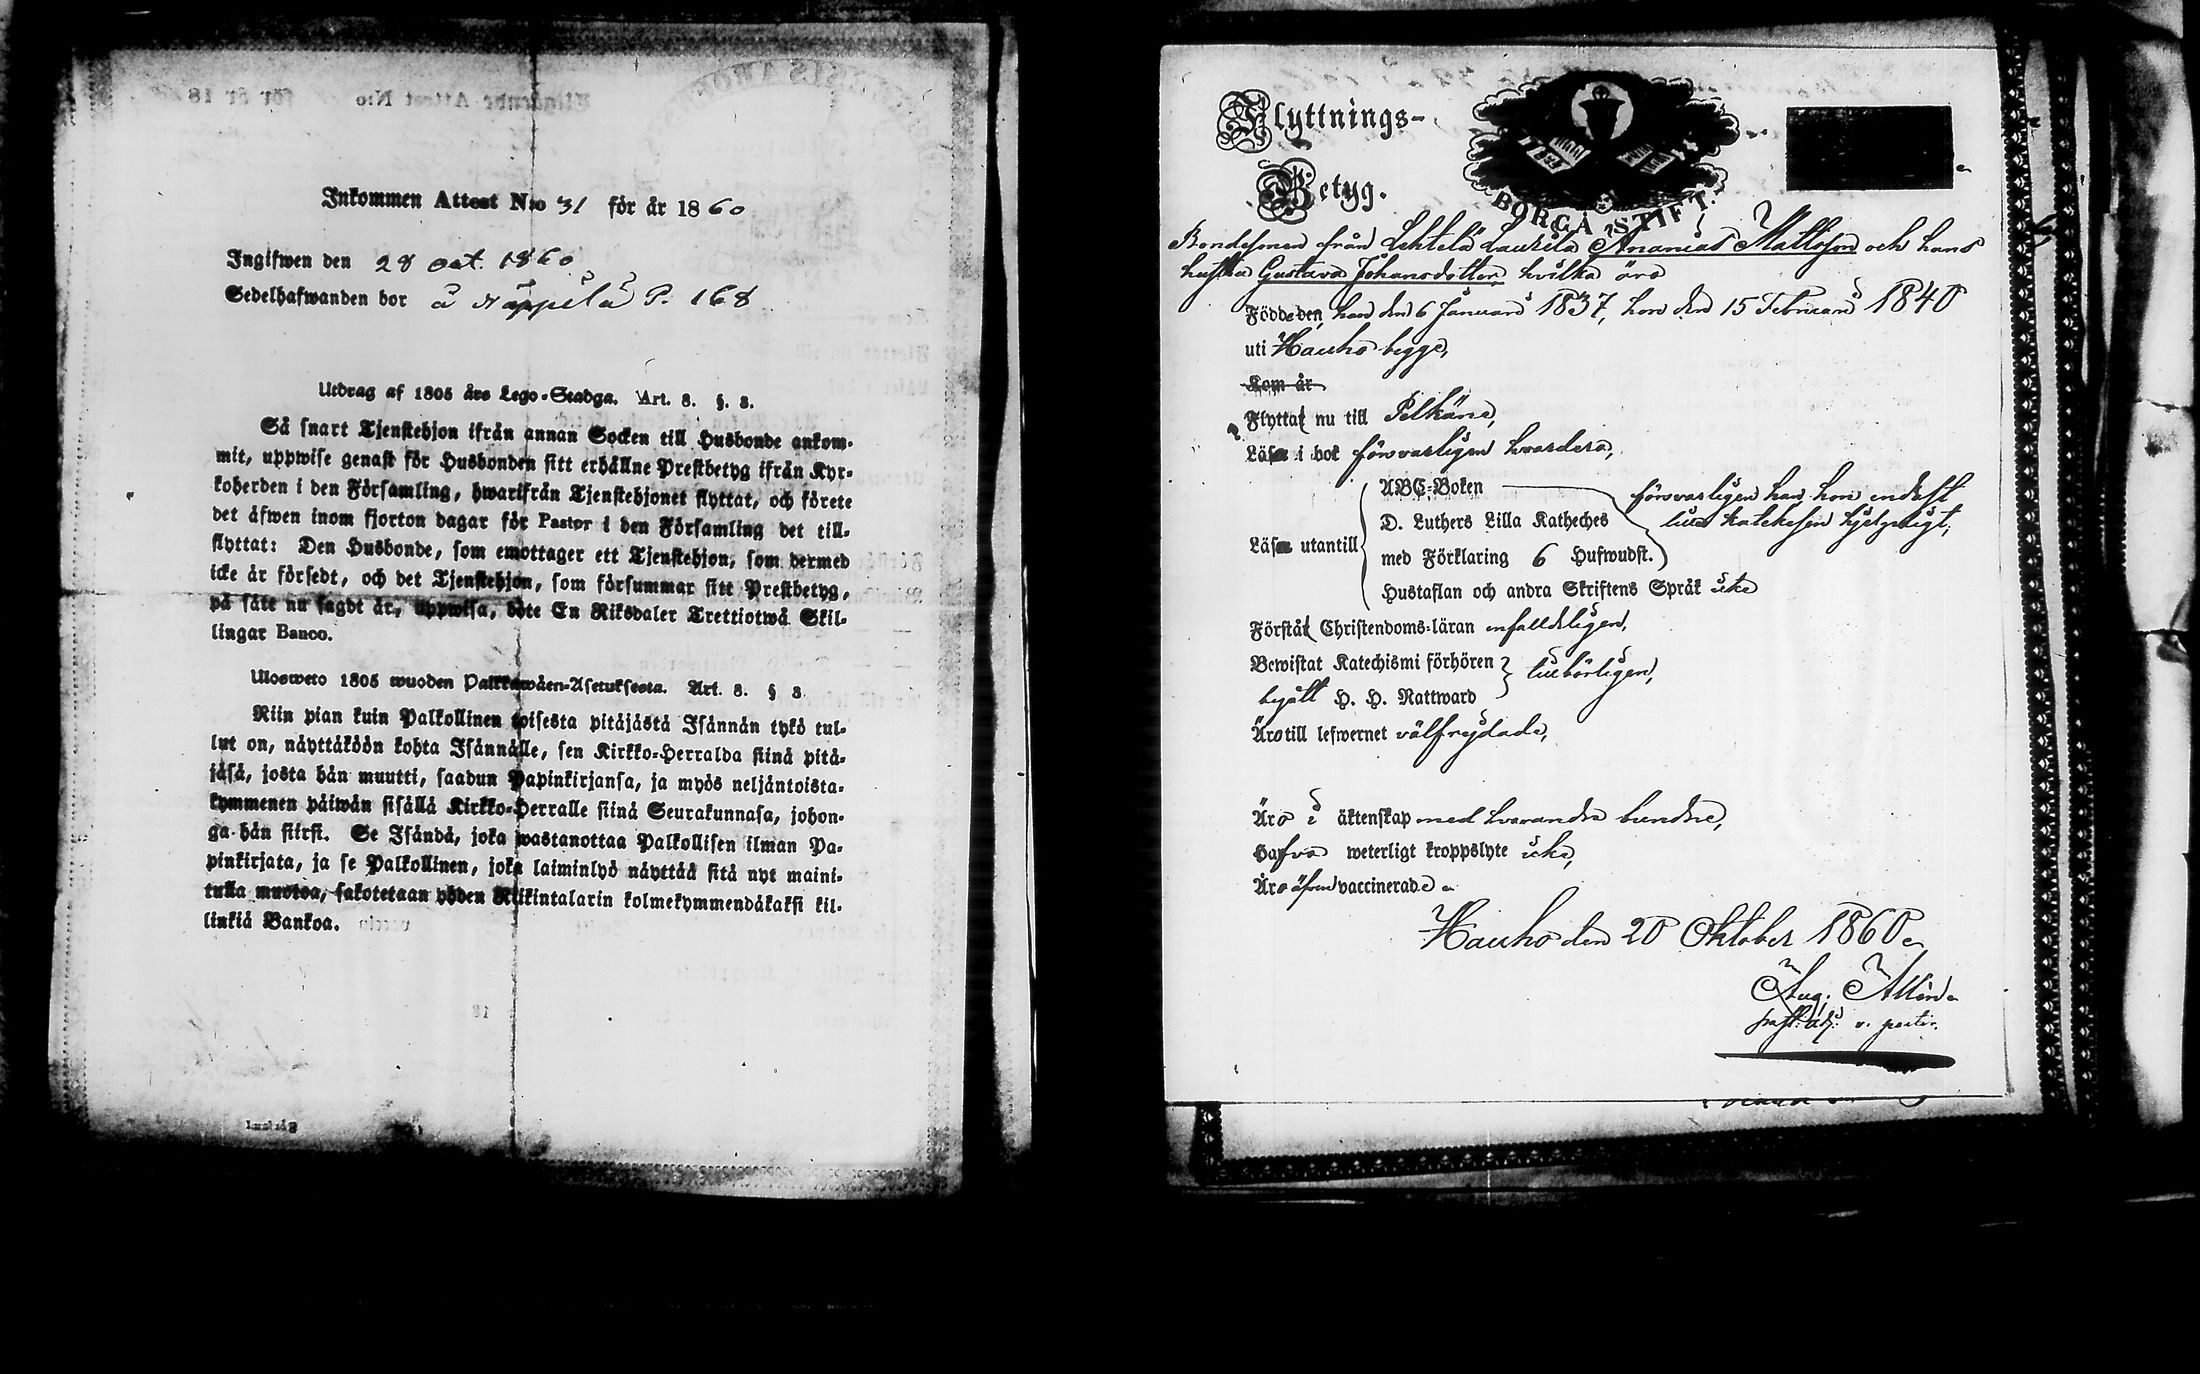 Inkommen Attest N:o 31 för år 1860
Ingifwen den 28 Oct. 1860
Sedelhafwanden bor å Näppilä P. 168
Utdrag af 1805 års Lego-Stadga. Art. 8. §. 3.
Så snart Tjenstehjon ifrån annan Socken till Husbonde ankom-
mit, uppwise genast för Husbonden sitt erhållne Prestbetyg ifrån Kyr-
koherden i den Församling, hwarifrån Tjenstehjonet flyttat, och förete
det äfwen inom fjorton dagar för Pastor i den Församling det till-
flyttat: Den Husbonde, som emottager ett Tjenstehjon, som dermed
icke är försedt, och det Tjenstehjon, som försummar sitt Prestbetyg,
på sätt nu sagdt är, uppwisa, böte En Riksdaler Trettiotwå Skil-
lingar Banco.
Ulosweto 1805 wuoden Palkkawäen-Asetuksesta. Art. 8. § 3
Niin pian kuin Palkollinen toisesta pitäjästä Isännän tykö tul-
lut on, näyttäköön kohta Isännälle, sen Kirkko-Herralda siinä pitä-
jäsä, josta hän muutti, saadun Papinkirjansa, ja myös neljäntoista-
kymmenen päiwän sisällä Kirkko-Herralle siinä Seurakunnasa, johon-
ga hän siirsi. Se Isändä, joka wastanottaa Palkollisen ilman Pa-
pinkirjata, ja se Palkollinen, joka laiminlyö näyttää sitä nyt maini-
tulla muotoa, sakotetaan yhden Riikintalarin kolmekymmendäkaksi kil-
linkiä Bankoa.
Flyttnings-
Betyg.
BORGÅ STIFT.
Bondesonen från Lehtelä Laurila Ananias Mattsson och hans
hustru Gustava Johansdotter, hvilka äro
Födde den han den 6 Januari 1837, hon den 15 Februari 1840
uti Hauho begge,
Kom år
Flyttat nu till Pelkäne,
Läsa i bok försvarligen hvardera,
ABC-Boken
försvarligen han, hon endast
D. Luthers Lilla Katheches
lilla katekesen hjelpligt,
Läsa utantill
med Förklaring 6 Hufwudst.
Hustaflan och andra Skriftens Språk icke
Förstå Christendoms-läran enfaldeligen,
Bewistat Katechismi förhören
tillbörligen,
begått H. H. Nattward
Äro till lefwernet välfrejdade,
Äro i äktenskap med hvarandra bundne,
Hafva weterligt kroppslyte icke,
Äro äfven vaccinerade
Hauho den 20 Oktober 1860
Aug. Allén
past. adj. v. pastor.